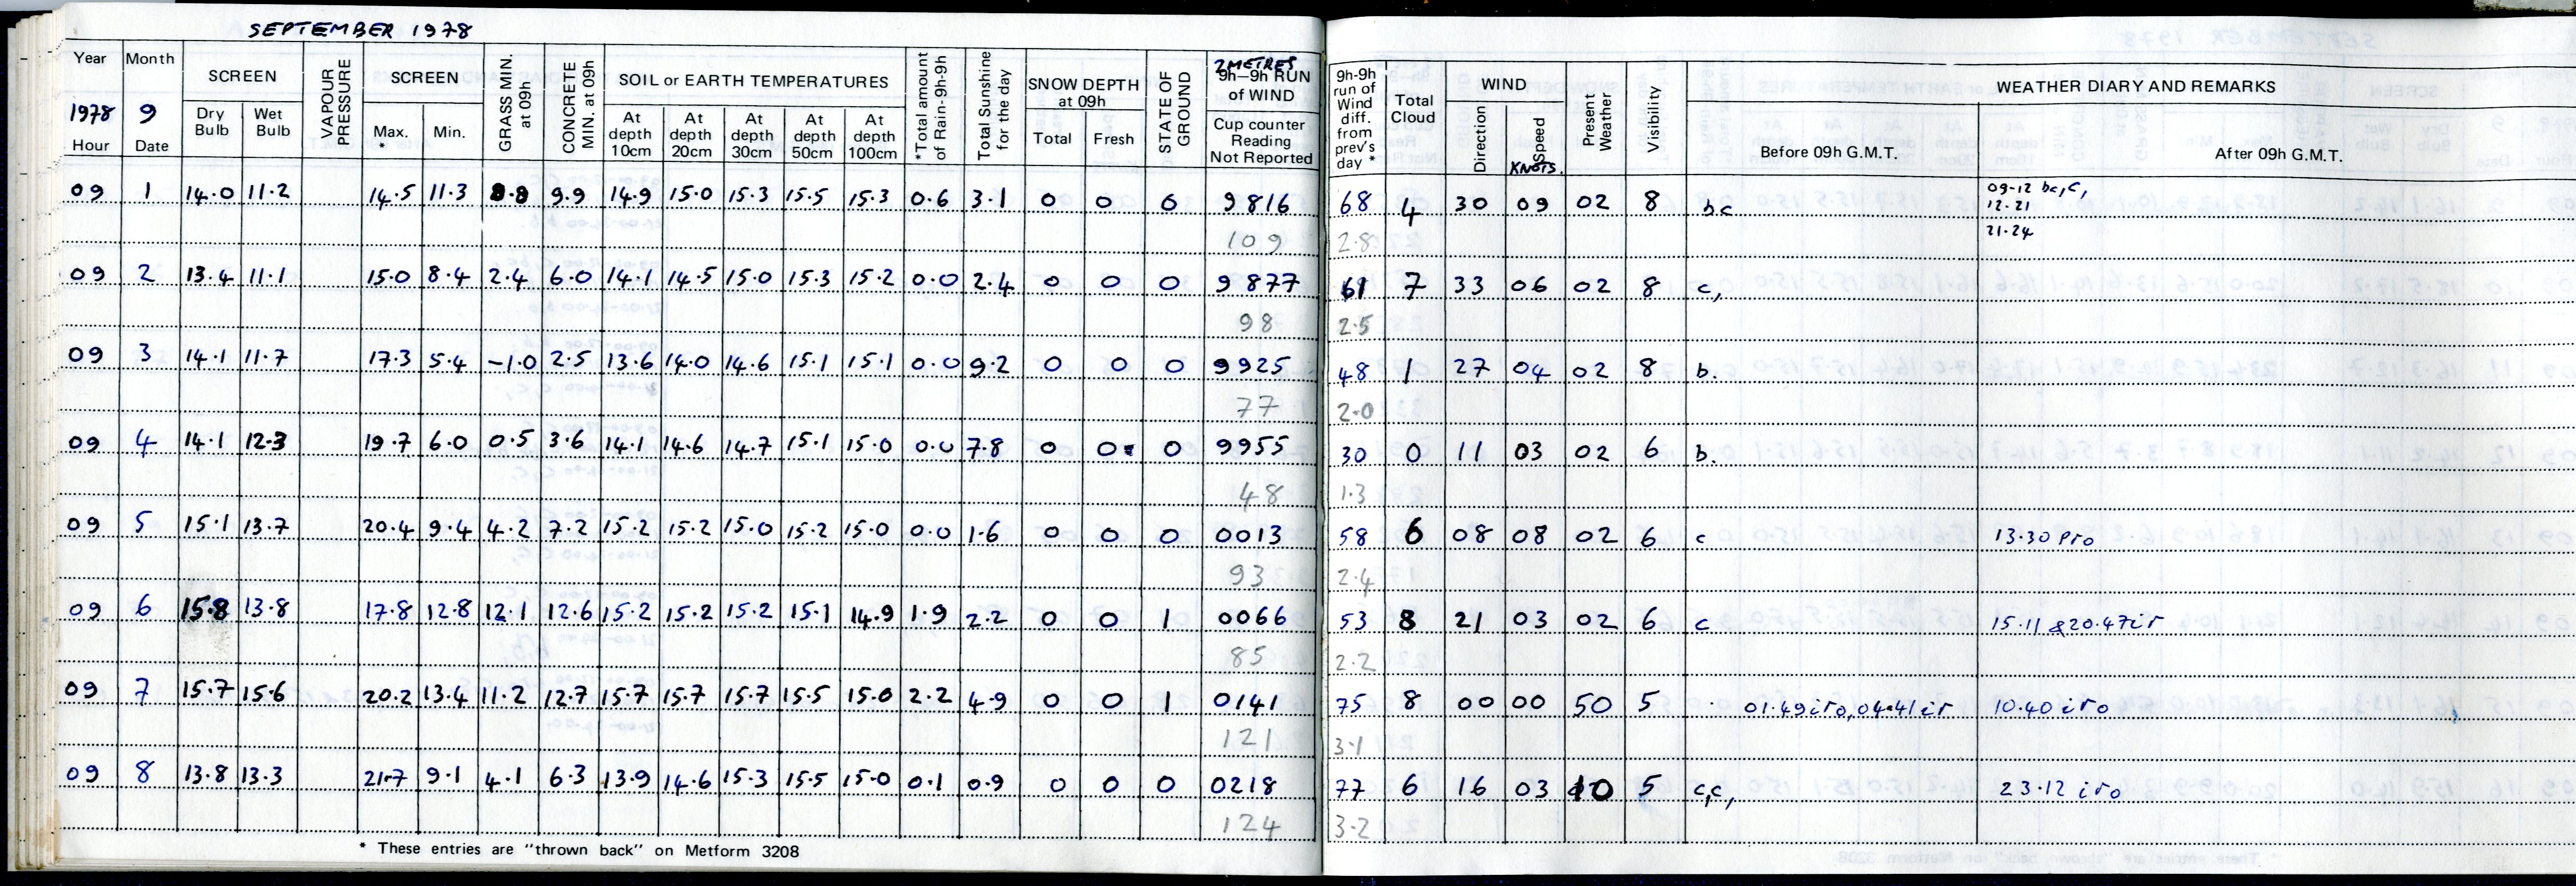 SEPTEMBER 1978
Year Month SCREEN VAPOUR PRESSURE SCREEN GRASS MIN. at 09h CONCRETE MIN. at 09h SOIL or EARTH TEMPERATURES *Total amount of Rain-9h-9h Total Sunshine for the day SNOW DEPTH at 09h STATE OF GROUND 2 METRES 9h-9h RUN of WIND 9h-9h run of Wind diff. from prev's day * Total Cloud WIND Present Weather Visibility WEATHER DIARY AND REMARKS
1978 9 Dry Bulb Wet Bulb Max. * Min. At depth 10cm At depth 20cm At depth 30cm At depth 50cm At depth 100cm Total Fresh Cup counter Reading Not Reported Direction Speed KNOTS. Before 09h G.M.T. After 09h G.M.T.
Hour Date
09 1 14.0 11.2 14.5 11.3 8.8 9.9 14.9 15.0 15.3 15.5 15.3 0.6 3.1 0 0 0 9816 68 4 30 09 02 8 bc 09-12 bc,c,
12-21
109 2.8 21-24
09 2 13.4 11.1 15.0 8.4 2.4 6.0 14.1 14.5 15.0 15.3 15.2 0.0 2.4 0 0 0 9877 61 7 33 06 02 8 c,
98 2.5
09 3 14.1 11.7 17.3 5.4 -1.0 2.5 13.6 14.0 14.6 15.1 15.1 0.0 9.2 0 0 0 9925 48 1 27 04 02 8 b.
77 2.0
09 4 14.1 12.3 19.7 6.0 0.5 3.6 14.1 14.6 14.7 15.1 15.0 0.0 7.8 0 0 0 9955 30 0 11 03 02 6 b.
48 1.3
09 5 15.1 13.7 20.4 9.4 4.2 7.2 15.2 15.2 15.0 15.2 15.0 0.0 1.6 0 0 0 0013 58 6 08 08 02 6 c 13.30 pro
93 2.4
09 6 15.8 13.8 17.8 12.8 12.1 12.6 15.2 15.2 15.2 15.1 14.9 1.9 2.2 0 0 1 0066 53 8 21 03 02 6 c 15.11 & 20.47 ir
85 2.2
09 7 15.7 15.6 20.2 13.4 11.2 12.7 15.7 15.7 15.7 15.5 15.0 2.2 4.9 0 0 1 0141 75 8 00 00 50 5 . 01.49 iro, 04.41 ir 10.40 iro
121 3.1
09 8 13.8 13.3 21.7 9.1 4.1 6.3 13.9 14.6 15.3 15.5 15.0 0.1 0.9 0 0 0 0218 77 6 16 03 10 5 c,c, 23.12 iro
124 3.2
* These entries are "thrown back" on Metform 3208